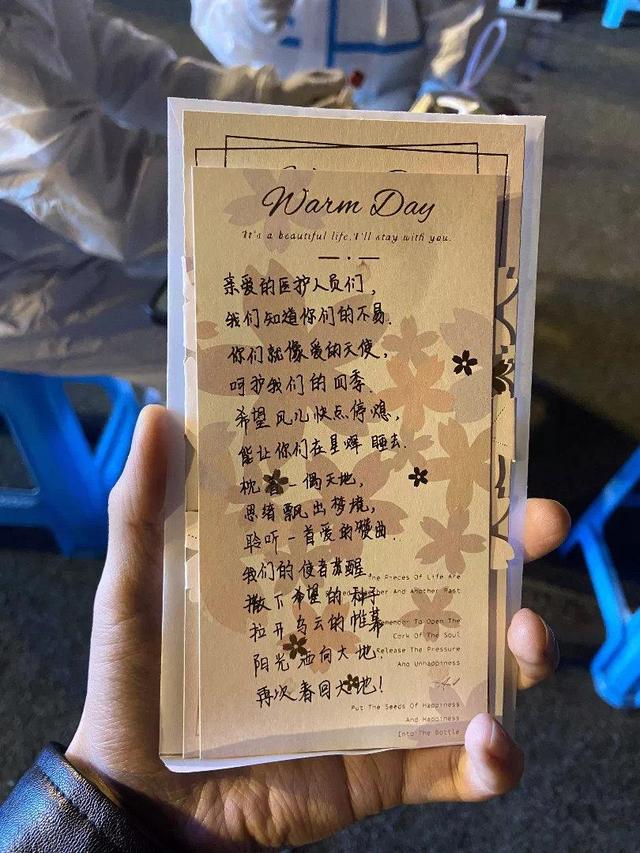 Warm Day
It's a beautiful life,I'll stay with you.
亲爱的医护人员们，
我们知道你们的不易.
你们就像爱的天使，
呵护我们的四季.
希望风儿快点停熄，
能让你们在星晖睡去.
枕着一偶天地，
思绪飘出梦境，
聆听一首爱的殇曲.
我们的使者苏醒，
撒下希望的种子
拉开乌云的帷幕
阳光洒向大地.
再次春回大地!
The Pieces Of Life Are
And Another Past
Remember To Open The
Cork Of The Soul
Release The Pressure
And Unhappiness
Put The Seeds Of Happiness
And Happiness
Into The Bottle